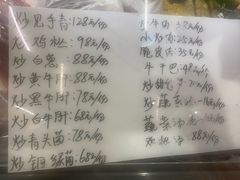 炒见手青:128元/份
炒鸡枞:98元/份
炒白葱:88元/份
炒黄牛肝:88元/份
炒黑牛肝:78元/份
炒白牛肝:68元/份
炒青头菌:78元/份
炒铜绿菌:68元/份
牛肉
小炒肉:25元/份
脆皮 35元/份
牛干巴:48元/份
炒 元/份
炒蔬菜
蔬菜汤
双椒 88元/份